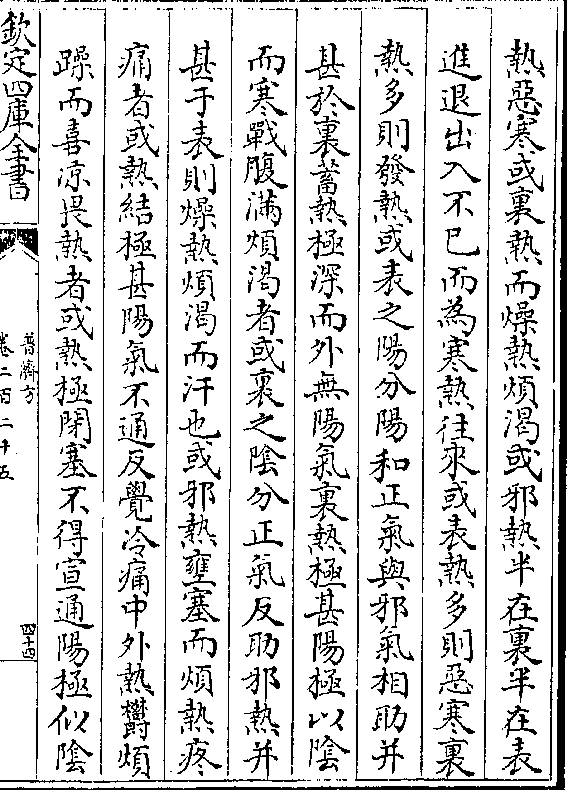 熱惡寒或裏熱而燥熱煩渴或邪熱半在裏半在表
進退出入不已而為寒熱徃來或表熱多則惡寒裏
熱多則發熱或表之陽分陽和正氣與邪氣相助并
甚於裏蓄熱極深而外無陽氣裏熱極甚陽極以陰
而寒戰腹滿煩渴者或裏之陰分正氣反助邪熱并
甚于表則燥熱煩渴而汗也或邪熱壅塞而煩熱疼
痛者或熱結極甚陽氣不通反覺冷痛中外熱鬱煩
躁而喜凉畏熱者或熱極閉塞不得宣通陽極似陰
欽定四庫全書
普濟方
卷二百二十五
四十四